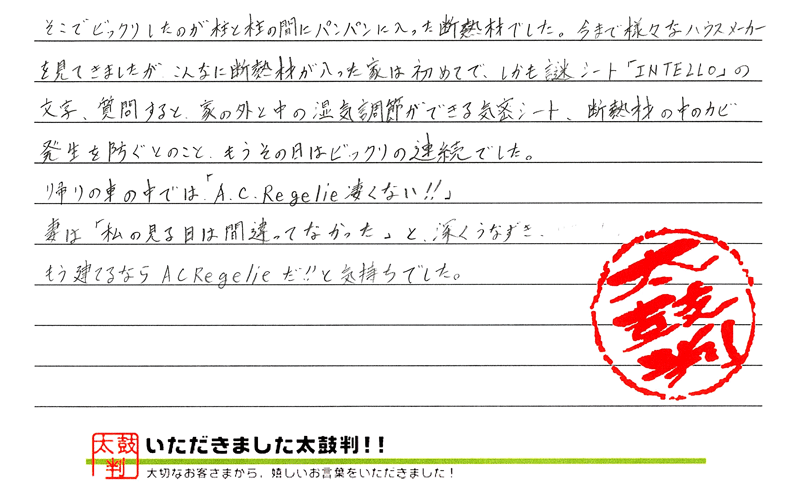 そこでビックリしたのが柱と柱の間にパンパンに入った断熱材でした。今まで様々なハウスメーカー
を見てきましたが、こんなに断熱材が入った家は初めてで、しかも謎シート「INTELLO」の
文字、質問すると、家の外と中の湿気調節ができる気密シート、断熱材の中のカビ
発生を防ぐとのこと、もうその日はビックリの連続でした。
帰りの車の中では「A.C.Regelie凄くない!!」
妻は「私の見る目は間違ってなかった」と、深くうなずき、
もう建てるならACRegelieだ!!と気持ちでした。
太鼓判
太鼓判
いただきました太鼓判!!
大切なお客さまから、嬉しいお言葉をいただきました!